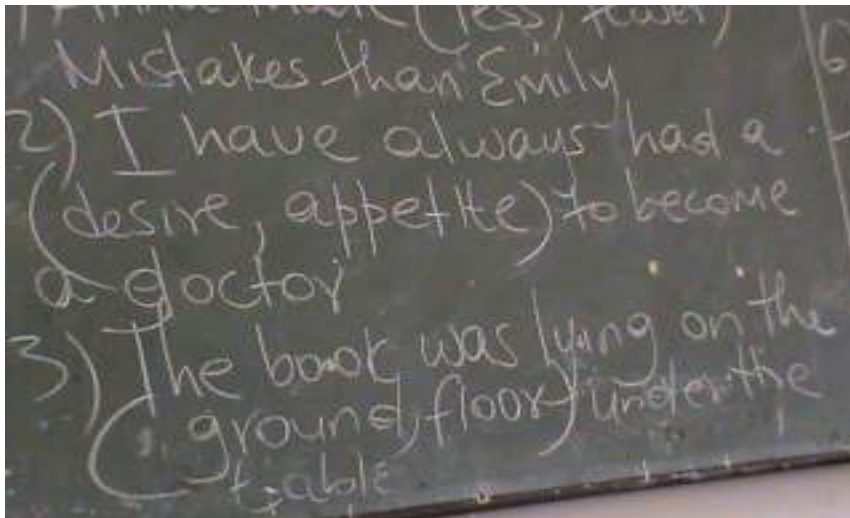 (less, fewer)
Mistakes than Emily
2) I have always had a
(desire, appetite) to become
a doctor
3) The book was lying on the
(ground, floor) under the
table
6